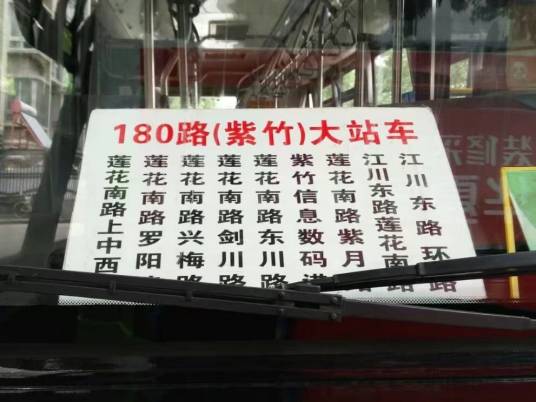 180路(紫竹)大站车
莲花南路上中西
莲花南路罗阳
莲花南路兴梅路
莲花南路剑川路
莲花南路东川路
紫竹信息数码港
莲花南路紫月路
江川东路莲花南路
江川东路环路
装修